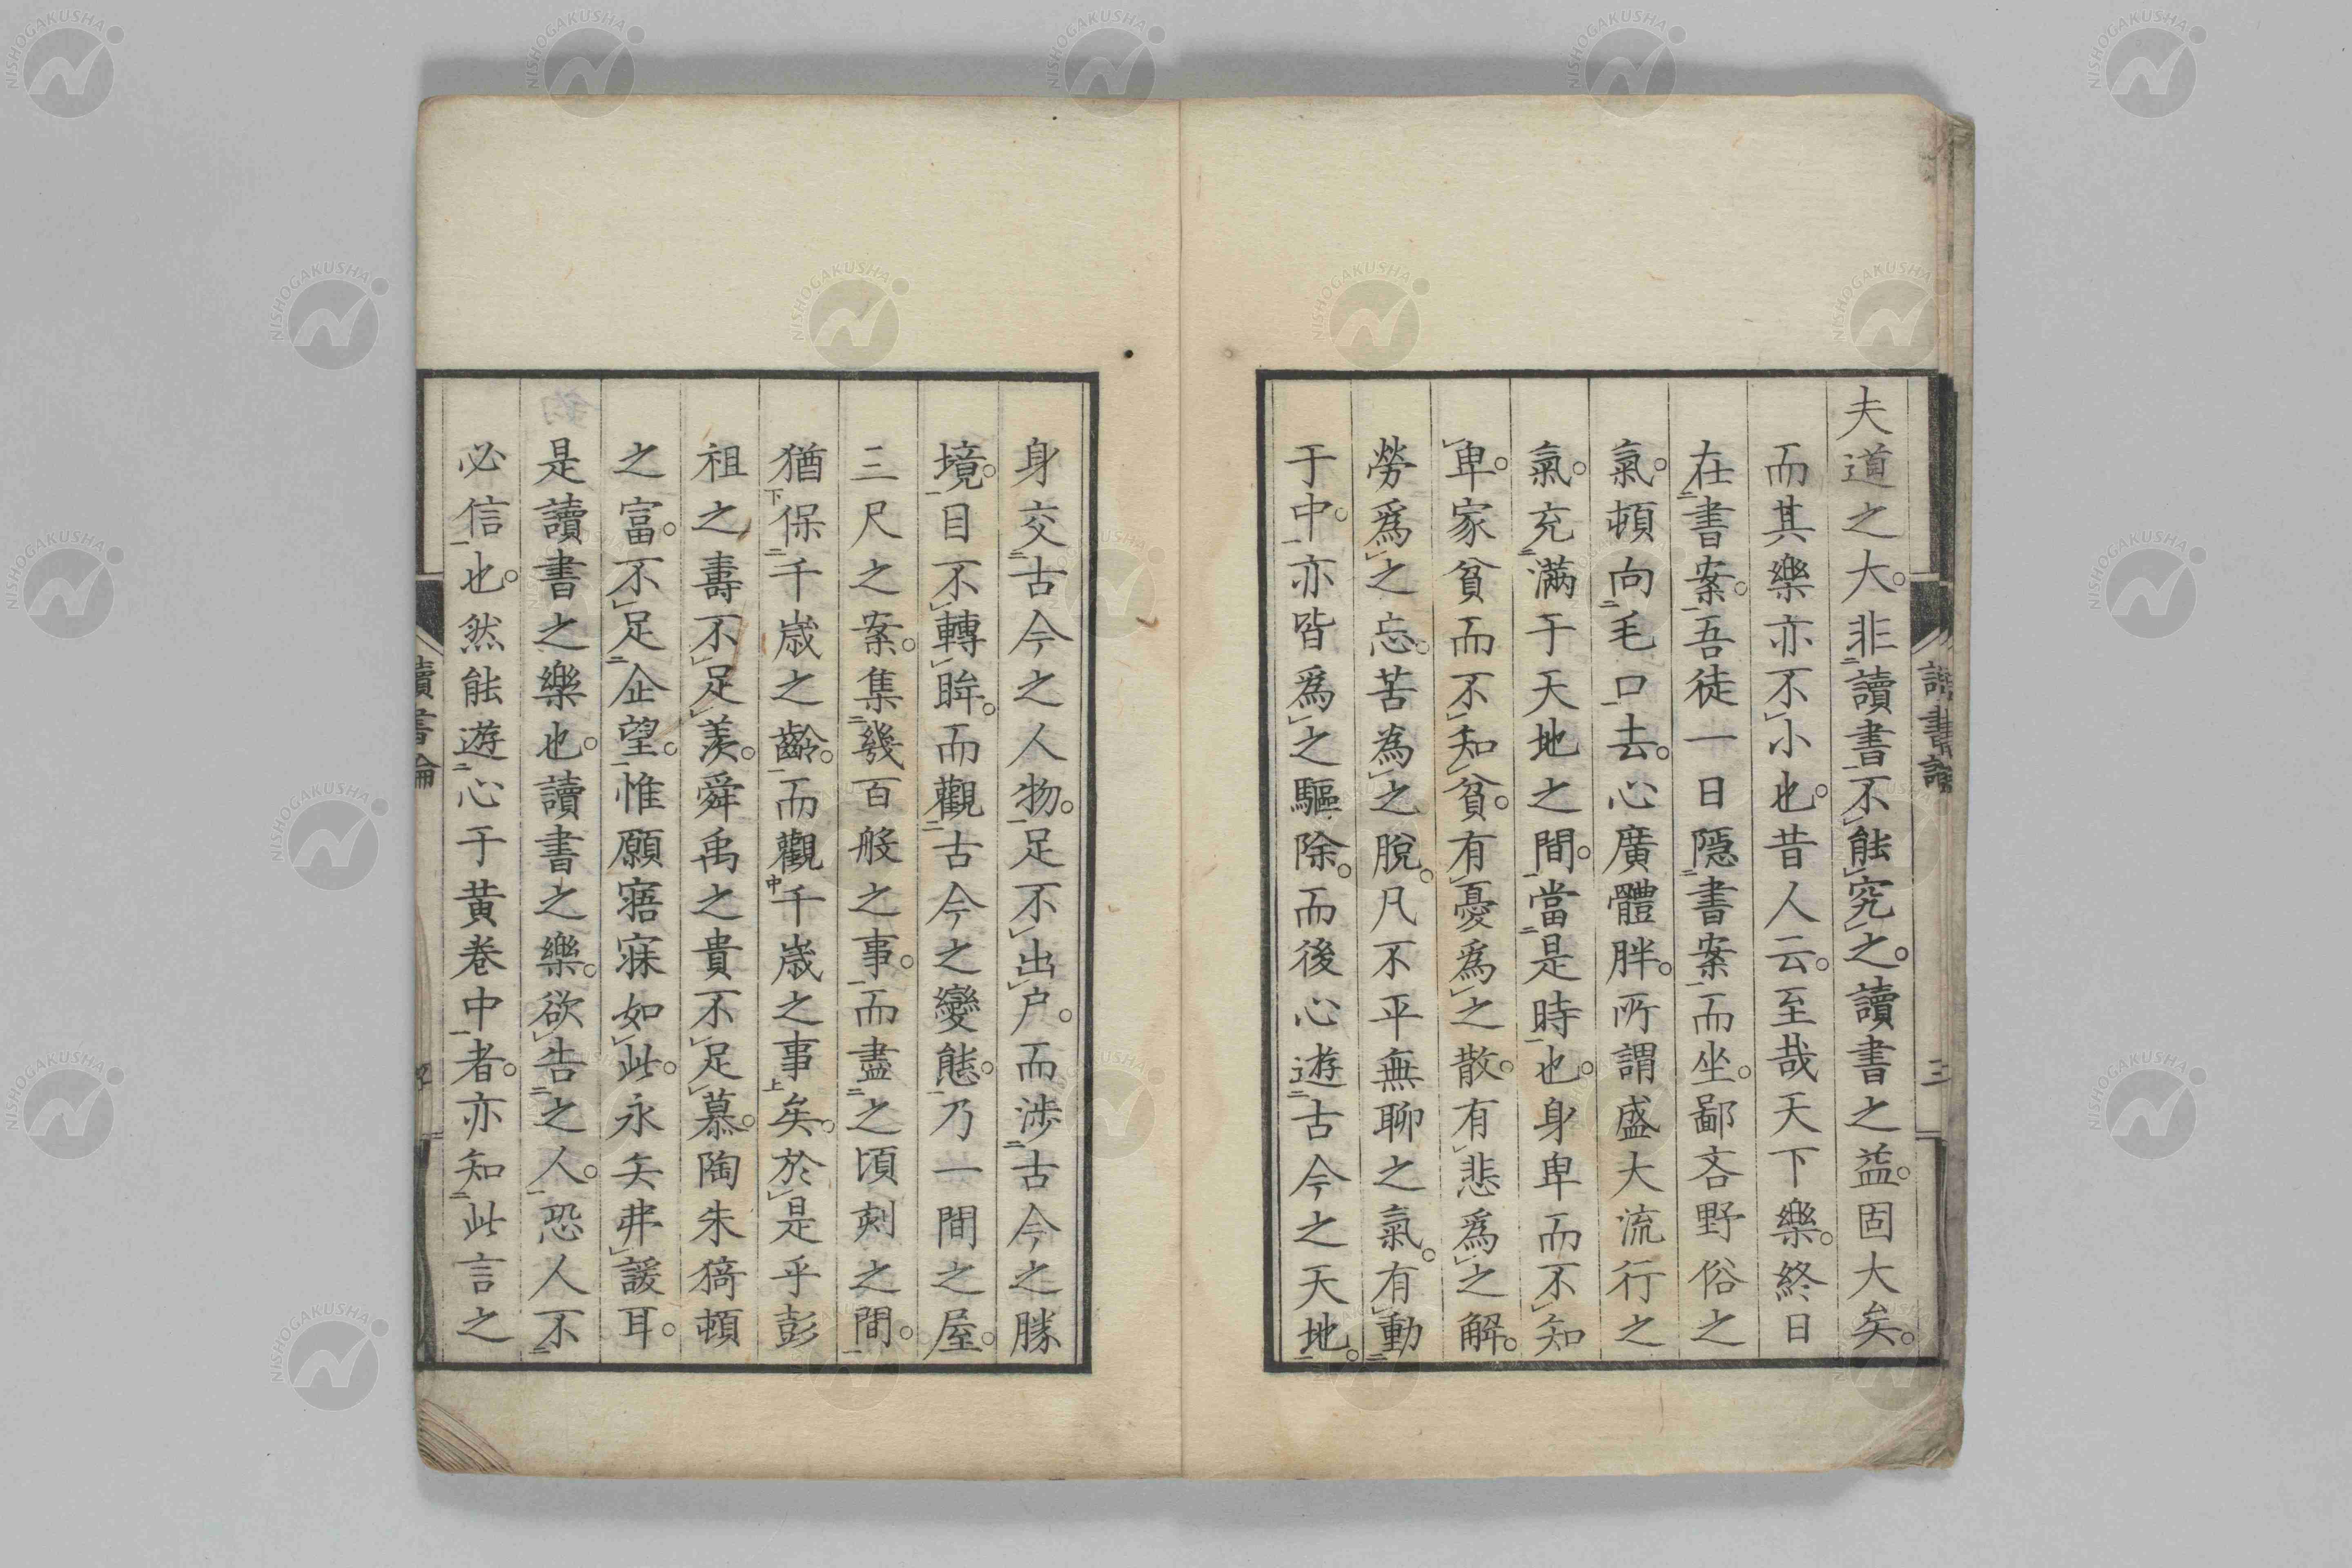 夫道之大。非讀書不能究之。讀書之益。固大矣。
而其樂亦不小也。昔人云。至哉天下樂。終日
在書案。吾徒一日隱書案而坐。鄙吝野俗之
氣。頓向毛口去。心廣體胖。所謂盛大流行之
氣。充滿于天地之間。當是時也。身卑而不知
卑。家貧而不知貧。有憂爲之散。有悲爲之解。
勞爲之忘。苦為之脫。凡不平無聊之氣。有動
于中。亦皆爲之驅除。而後心遊古今之天地。
身交古今之人物。足不出户。而渉古今之勝
境。目不轉眸。而觀古今之變態。乃一間之屋。
三尺之案。集幾百般之事。而盡之頃刻之間。
猶保千歳之齡。而觀千歳之事矣。於是乎彭
祖之壽不足羨。舜禹之貴不足慕。陶朱猗頓
之富。不足企望。惟願寤寐如此。永矢弗諼耳。
是讀書之樂也。讀書之樂。欲告之人。恐人不
必信也。然能遊心于黄巻中者。亦知此言之
讀書論
三
NISHOGAKUSHA